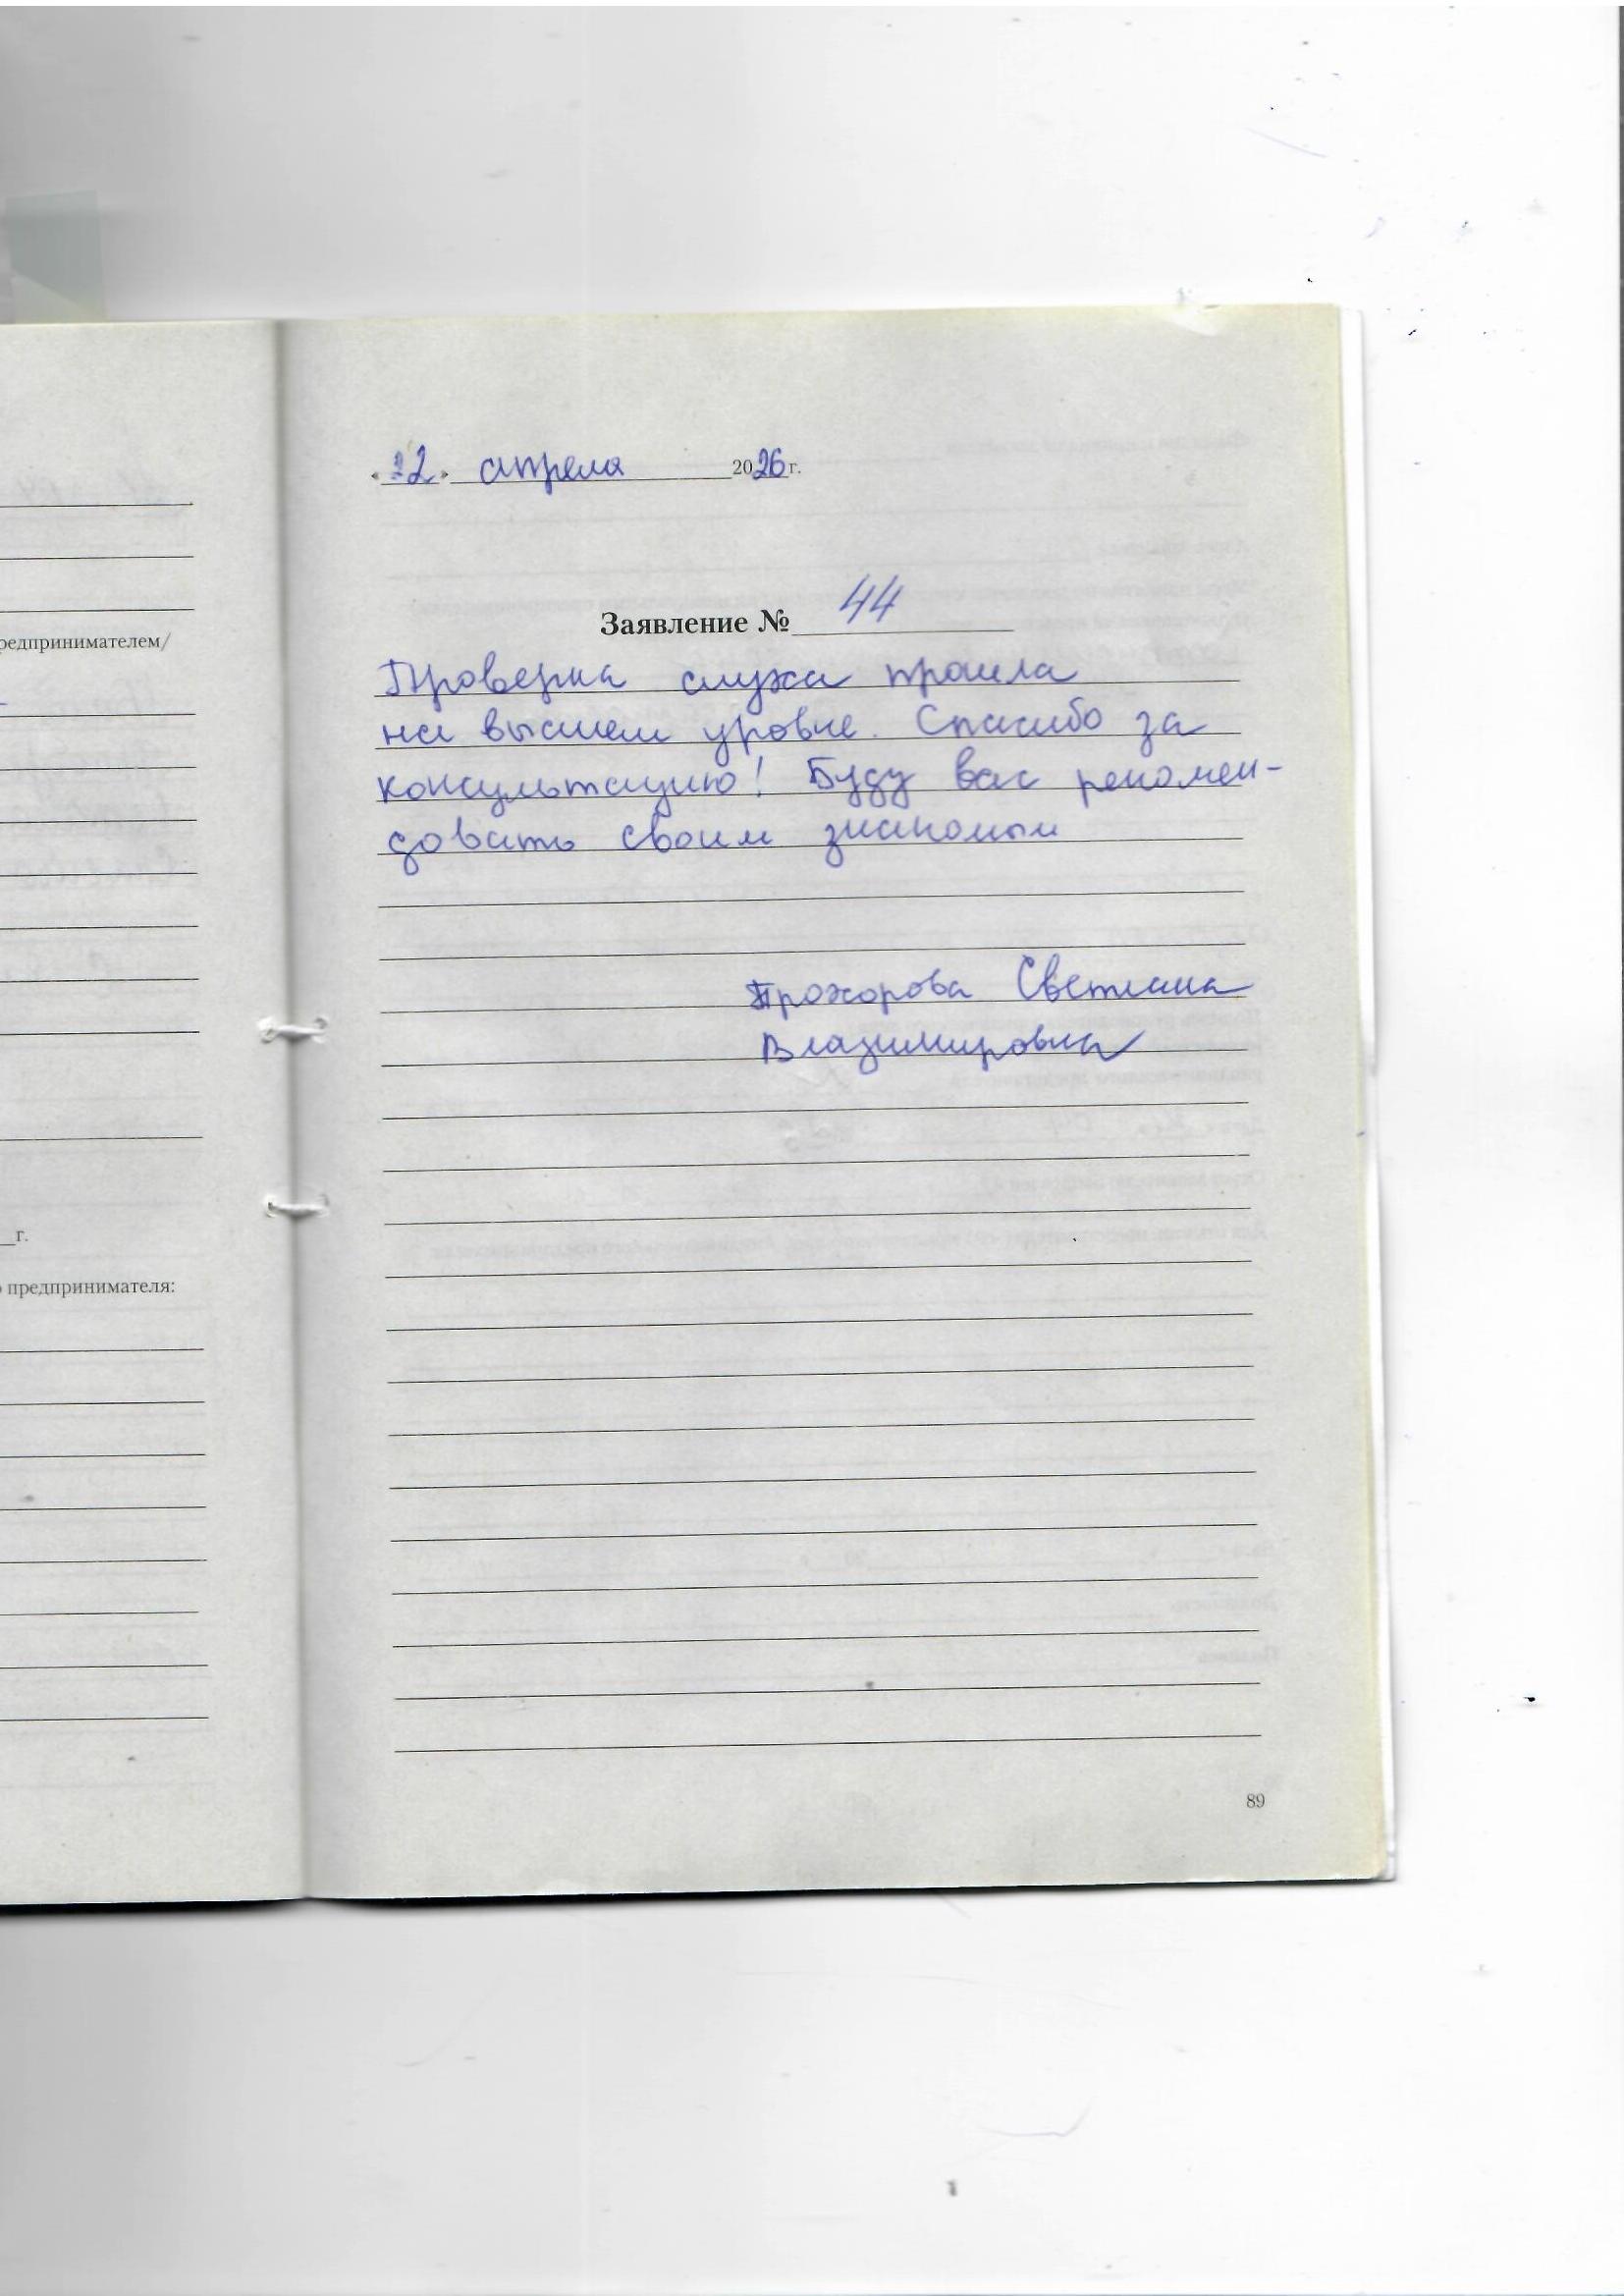 «22» апреля 2026 г.
Заявление № 44
Проверка слуха прошла
на высшем уровне. Спасибо за
консультацию! Буду вас рекомен-
довать своим знакомым
Прохорова Светлана
Владимировна
редпринимателем/
г.
предпринимателя:
89